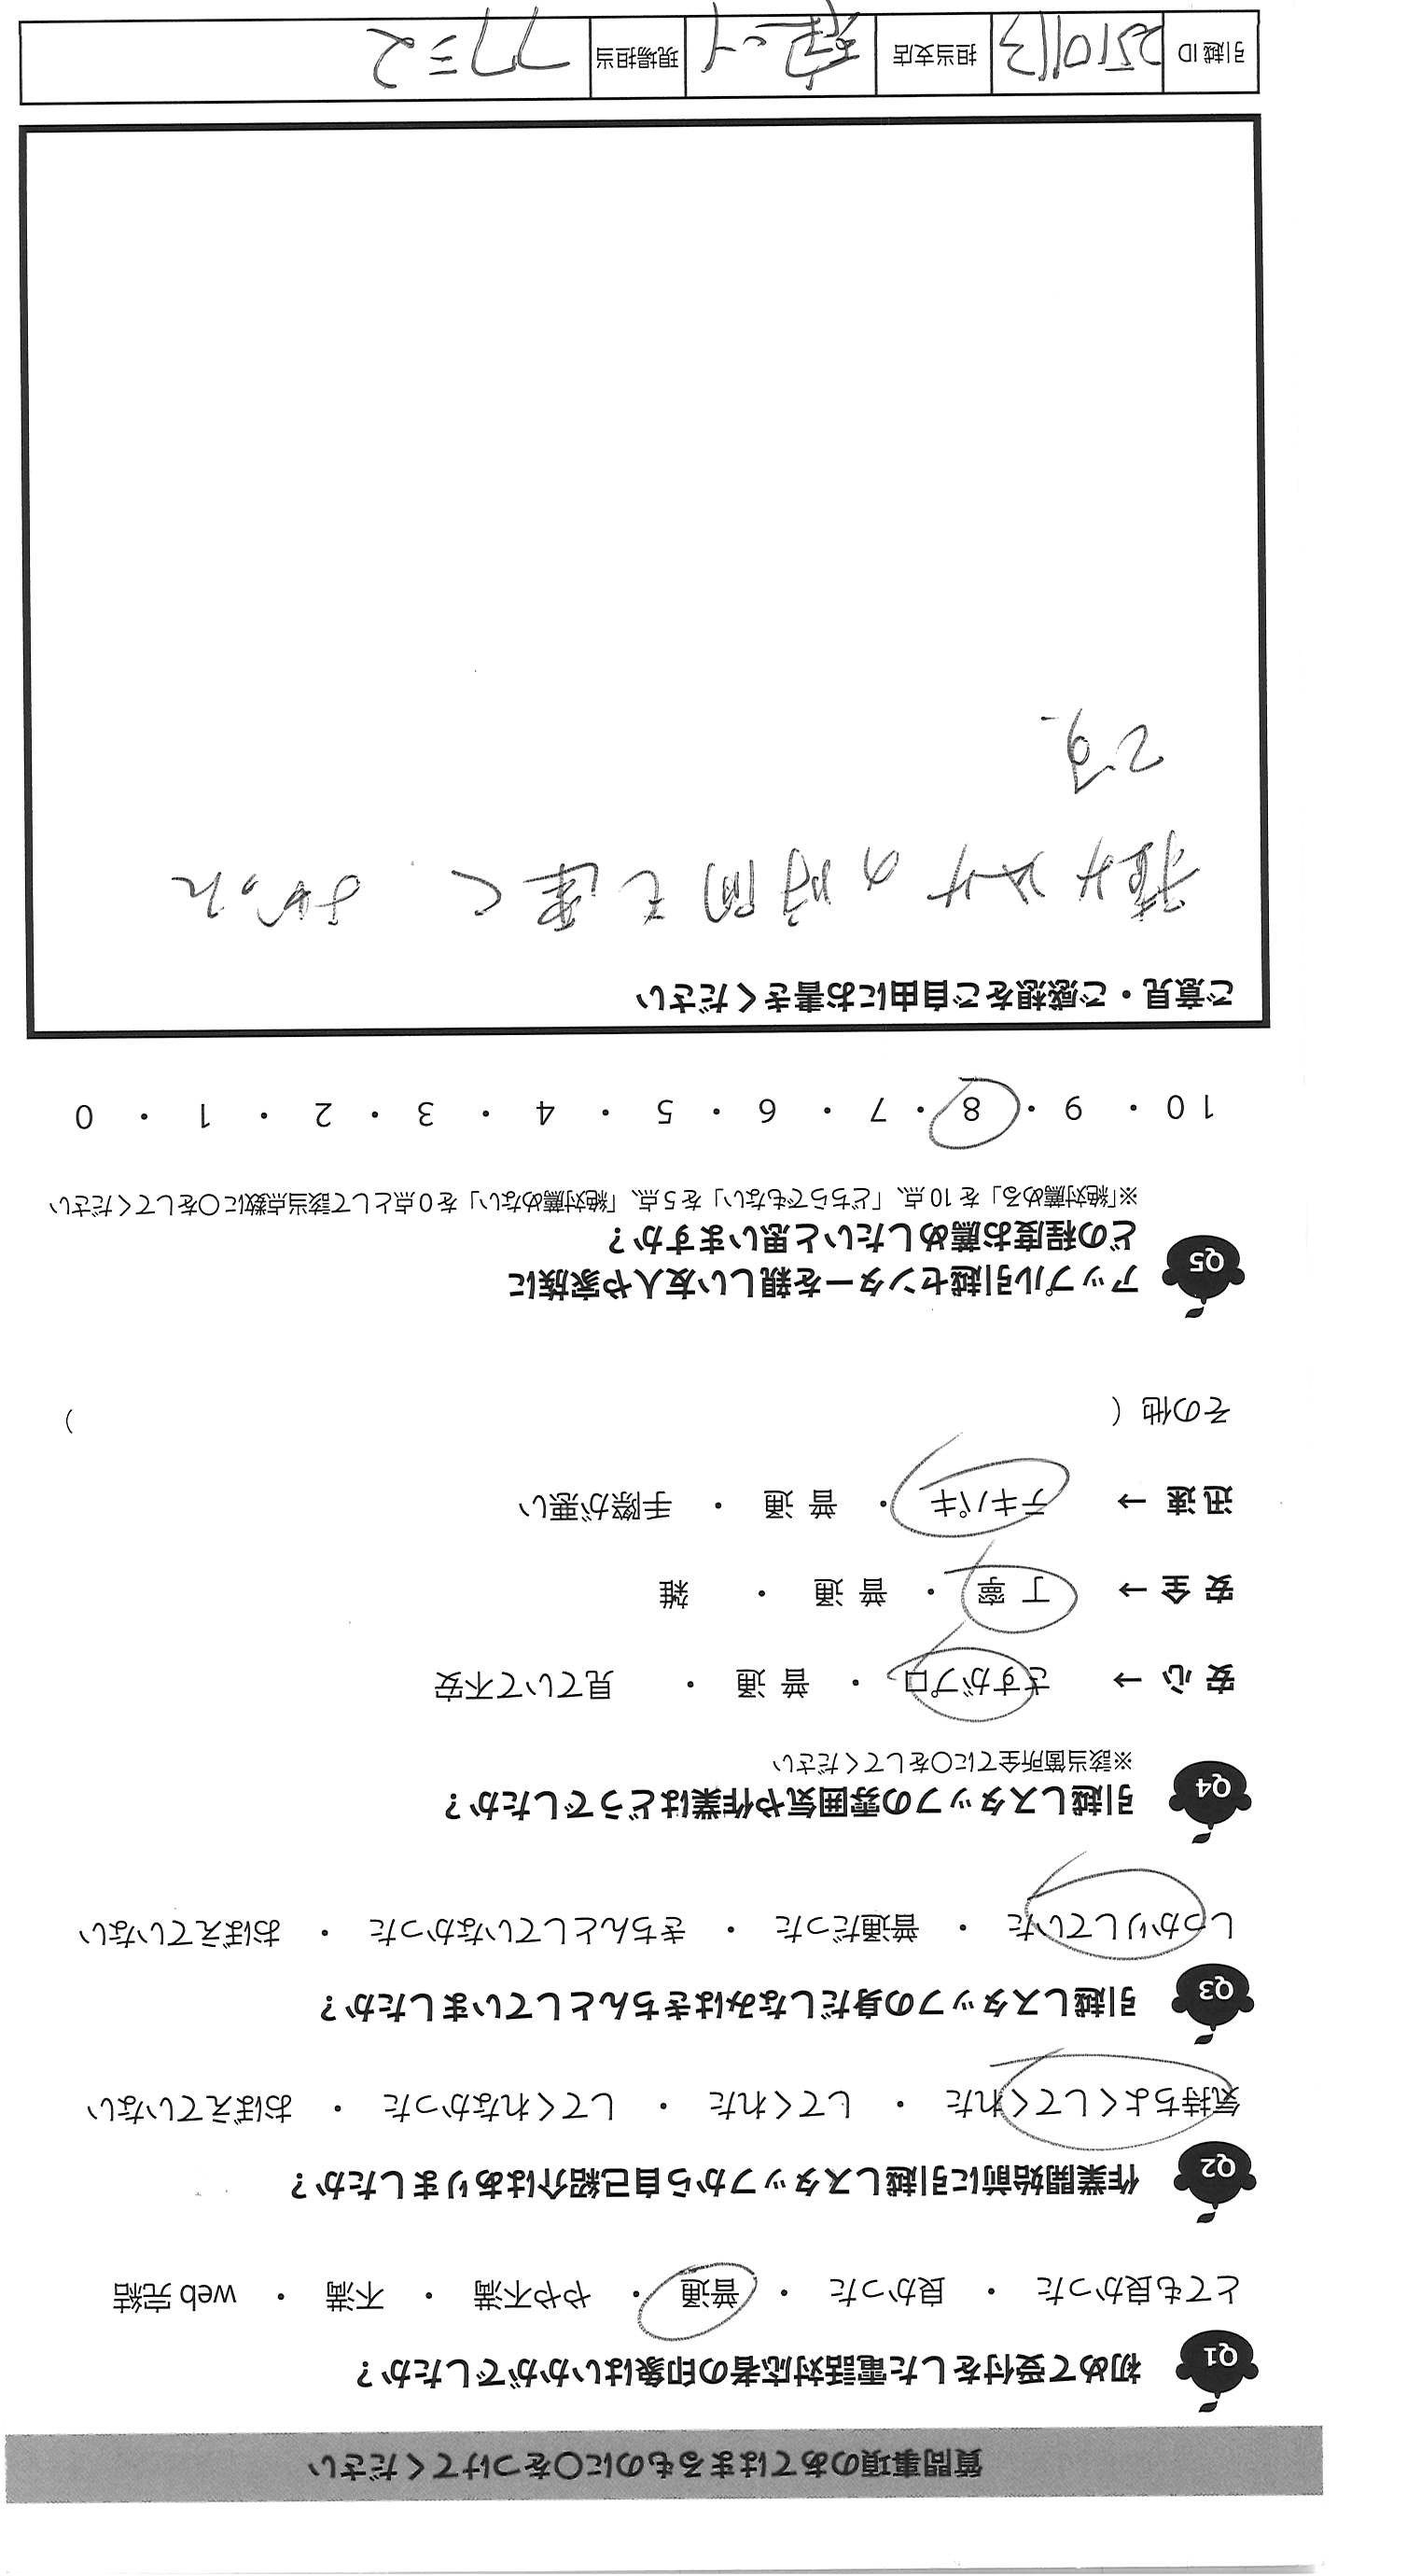 質問事項のあてはまるものに〇をつけてください
Q1 初めて受付をした電話対応者の印象はいかがでしたか？
とても良かった ・ 良かった ・ 普通 ・ やや不満 ・ 不満 ・ web完結
Q2 作業開始前に引越しスタッフから自己紹介はありましたか？
気持ちよくしてくれた ・ してくれた ・ してくれなかった ・ おぼえていない
Q3 引越しスタッフの身だしなみはきちんとしていましたか？
しっかりしていた ・ 普通だった ・ きちんとしていなかった ・ おぼえていない
Q4 引越しスタッフの雰囲気や作業はどうでしたか？
※該当箇所全てに〇をしてください
安心 → さすがプロ ・ 普通 ・ 見ていて不安
安全 → 丁寧 ・ 普通 ・ 雑
迅速 → テキパキ ・ 普通 ・ 手際が悪い
その他（ ）
Q5 アップル引越センターを親しい友人や家族に
どの程度お薦めしたいと思いますか？
※「絶対薦める」を10点、「どちらでもない」を5点、「絶対薦めない」を0点として該当点数に〇をしてください
10 ・ 9 ・ 8 ・ 7 ・ 6 ・ 5 ・ 4 ・ 3 ・ 2 ・ 1 ・ 0
ご意見・ご感想をご自由にお書きください
の時間も早く よかった
です。
引越ID 担当支店 現場担当